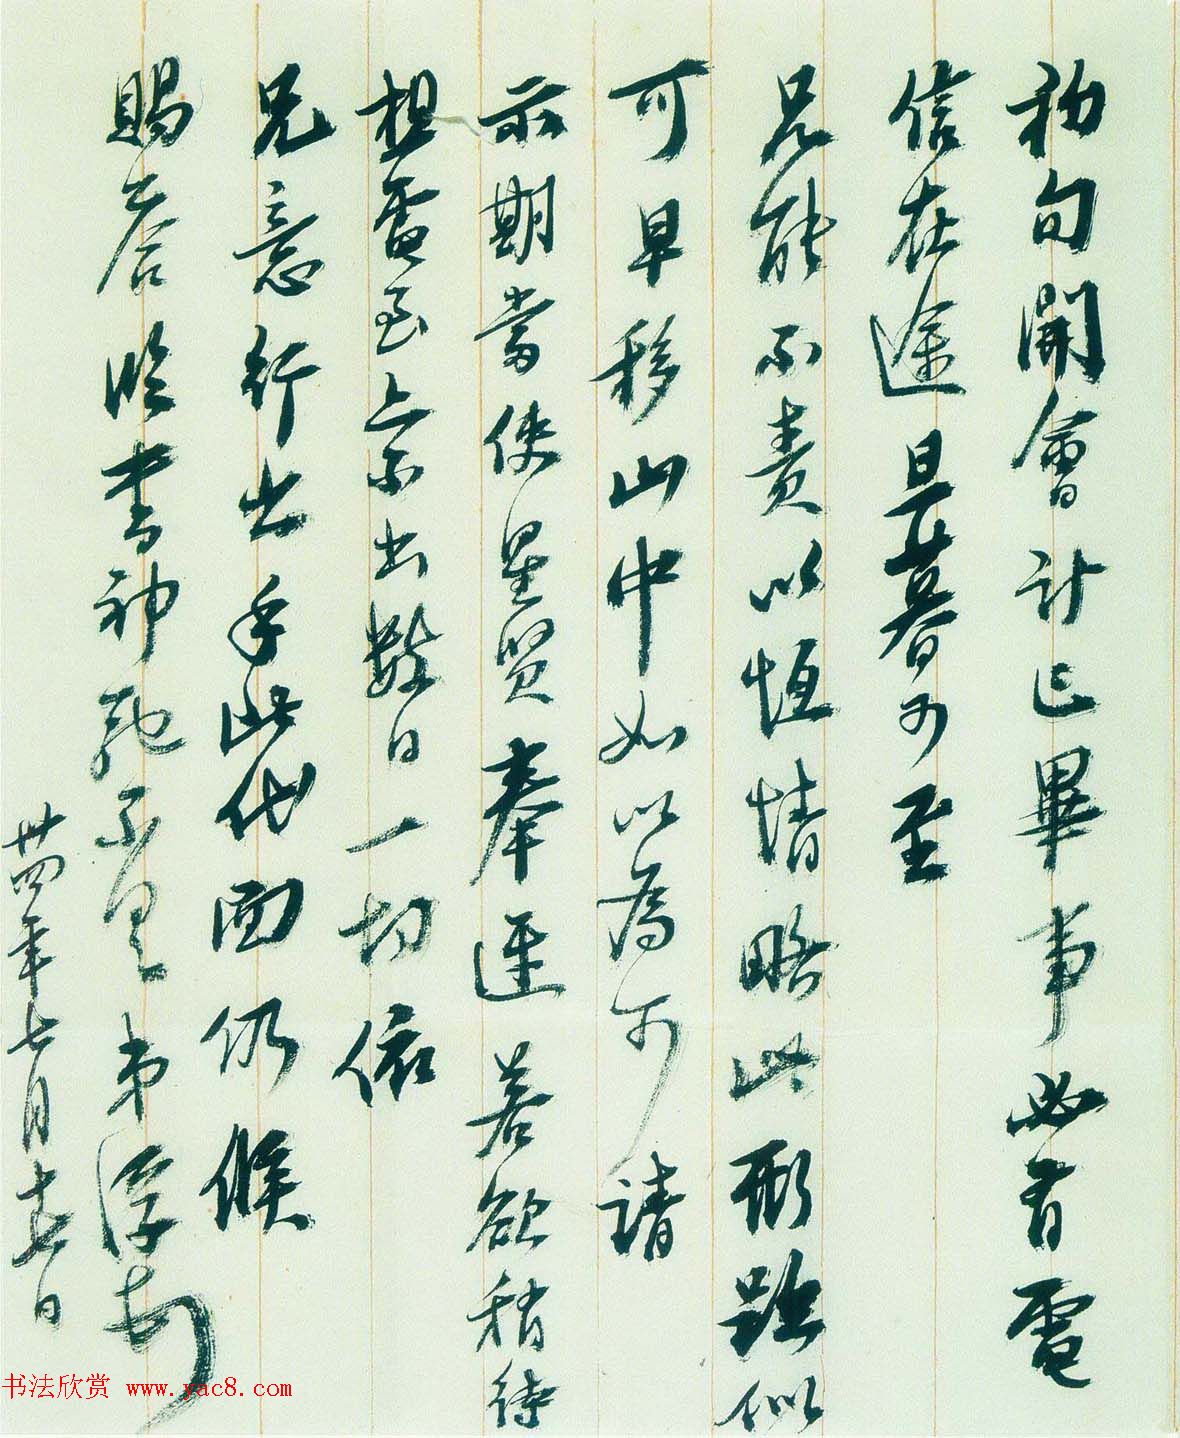 初旬開會計已畢事必有電
信在途旦暮可至
兄能不責以恒情略此形跡似
可早移山中如以為可請
示期當使星賢奉迓若欲稍待
想電至亦不出數日一切依
兄意行止手此代面仍候
賜答臨書神馳不具弟浮頓首
卅四年七月十七日
书法欣赏 www.yac8.com